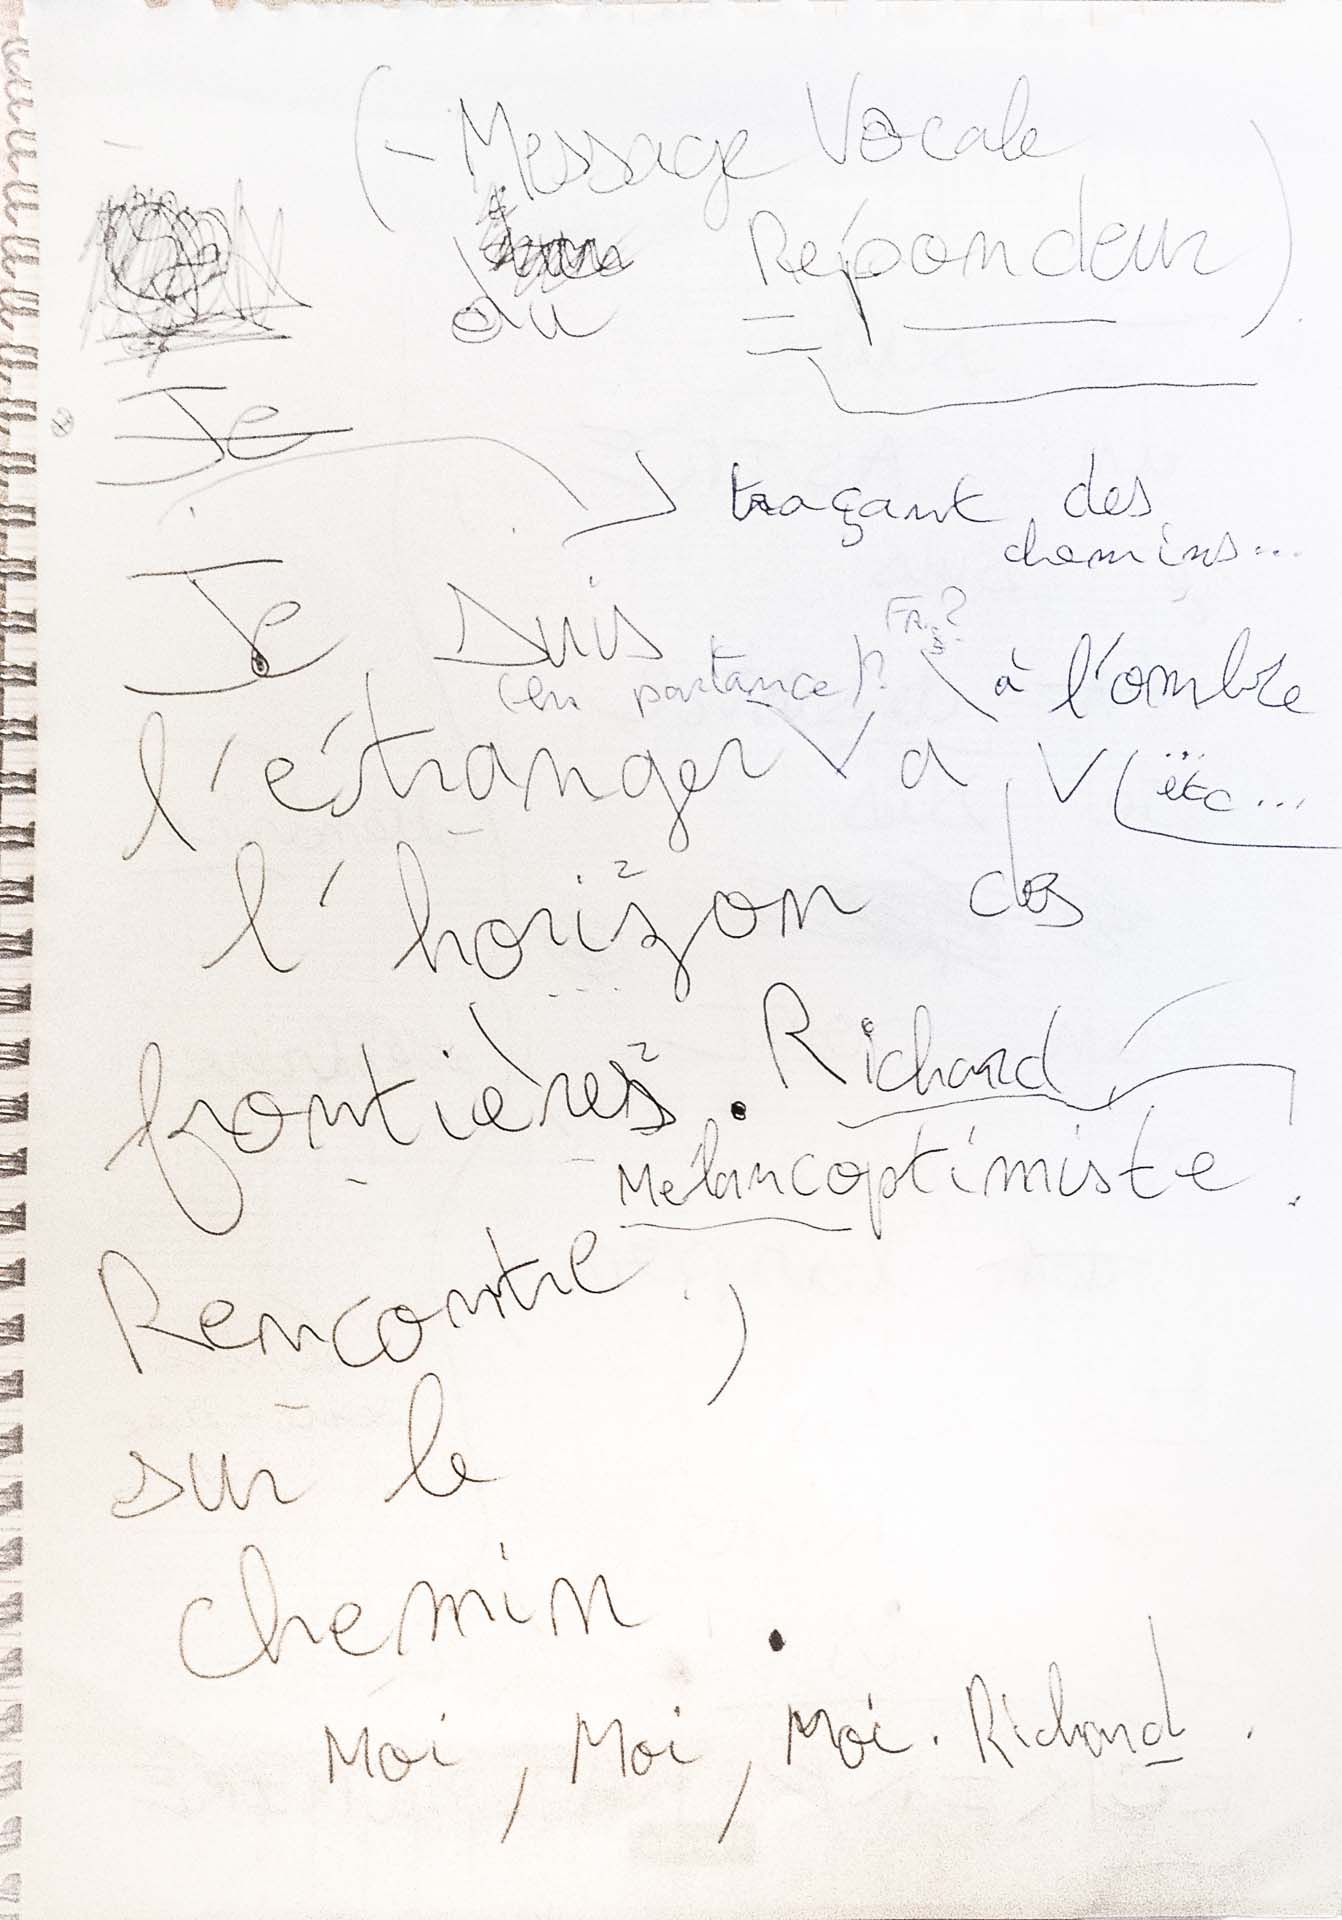 (- Message Vocale
du Répondeur)
Je
traçant des
chemins...
Je suis
(en partance)?
à l'ombre
l'étranger à
etc...
l'horizon des
frontières. Richard
Mélancoptimiste.
Rencontre,
sur le
chemin.
Moi, Moi, Moi. Richard.